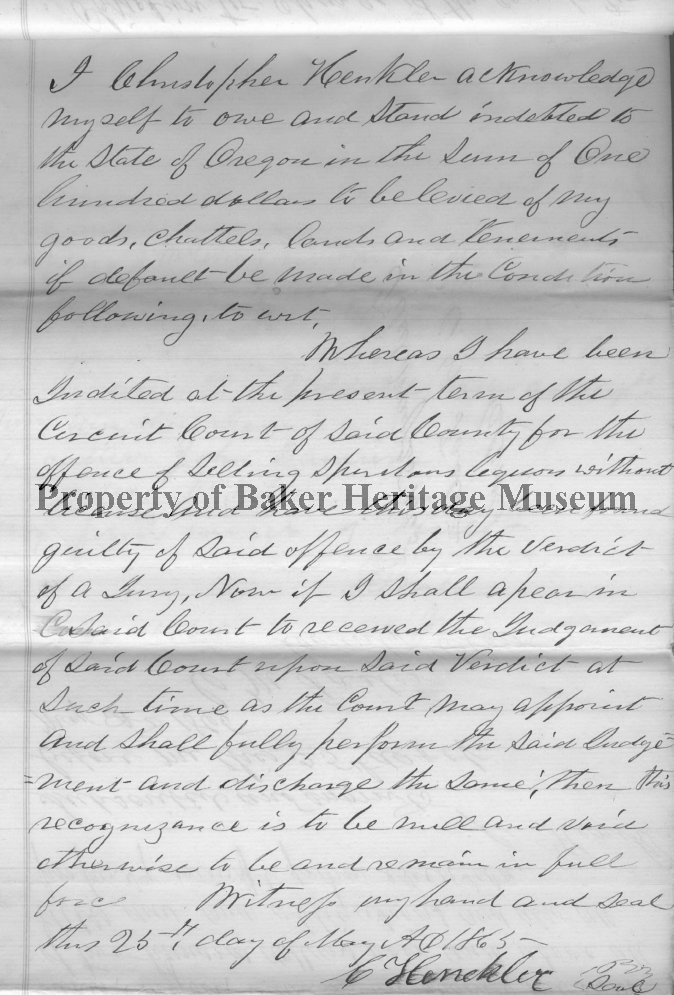 I Christopher Henkler acknowledge
myself to owe and stand indebted to
the State of Oregon in the sum of One
hundred dollars to be levied of my
goods, chattels, lands and tenements
if default be made in the Condition
following, to wit,
Whereas I have been
Indited at the present term of the
Circuit Court of said County for the
offence of Selling Spiritous liquors without
Property of Baker Heritage Museum
license and have this day been found
guilty of said offence by the verdict
of a Jury, Now if I shall apear in
said Court to received the Judgament
of said Court upon said Verdict at
such time as the Court may appoint
and shall fully perform the said Judge=
=ment and discharge the same, then this
recognizance is to be null and void
otherwise to be and remain in full
forc Witness my hand and seal
this 25th, day of May AD 1865
C Henckler Seal